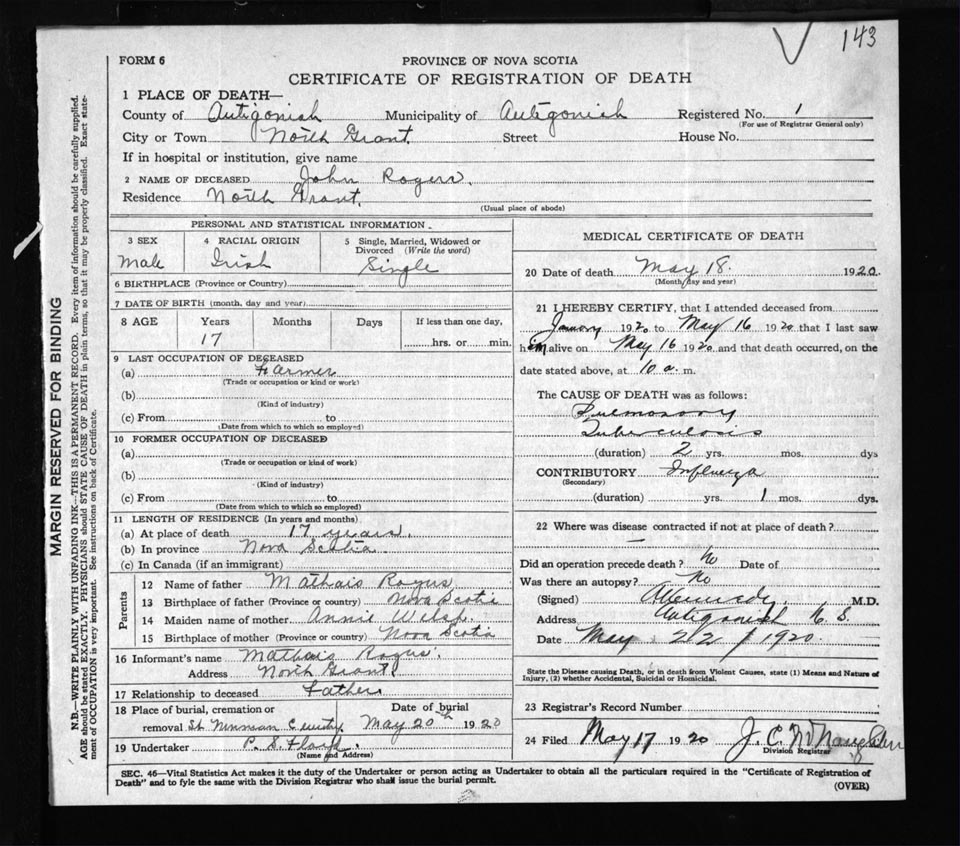 143
FORM 6
PROVINCE OF NOVA SCOTIA
CERTIFICATE OF REGISTRATION OF DEATH
1 PLACE OF DEATH—
County of Antigonish Municipality of Antigonish Registered No. 1
(For use of Registrar General only)
City or Town North Grant. Street House No.
If in hospital or institution, give name
2 NAME OF DECEASED John Rogers.
Residence North Grant.
(Usual place of abode)
PERSONAL AND STATISTICAL INFORMATION.
3 SEX 4 RACIAL ORIGIN 5 Single, Married, Widowed or
Divorced (Write the word)
Male Irish Single
6 BIRTHPLACE (Province or Country)
7 DATE OF BIRTH (month, day and year)
8 AGE Years Months Days If less than one day,
17 hrs. or min.
9 LAST OCCUPATION OF DECEASED
(a) Farmer
(Trade or occupation or kind or work)
(b)
(Kind of industry)
(c) From to
(Date from which to which so employed)
10 FORMER OCCUPATION OF DECEASED
(a)
(Trade or occupation or kind of work)
(b)
(Kind of industry)
(c) From to
(Date from which to which so employed)
11 LENGTH OF RESIDENCE (In years and months)
(a) At place of death 17 years.
(b) In province Nova Scotia
(c) In Canada (if an immigrant)
Parents
12 Name of father Mathais Rogers
13 Birthplace of father (Province or country) Nova Scotia
14 Maiden name of mother Annie
15 Birthplace of mother (Province or country) Nova Scotia
16 Informant's name Mathais Rogers.
Address North Grant.
17 Relationship to deceased Father
18 Place of burial, cremation or Date of burial
removal St May 20th 1920
19 Undertaker P. S.
(Name and Address)
MEDICAL CERTIFICATE OF DEATH
20 Date of death May 18. 1920.
(Month, day and year)
21 I HEREBY CERTIFY, that I attended deceased from
January 1920 to May 16 1920 that I last saw
him alive on May 16 1920 and that death occurred, on the
date stated above, at 10 a. m.
The CAUSE OF DEATH was as follows:
Pulmonary
Tuberculosis
(duration) 2 yrs. mos. dys
CONTRIBUTORY Influenza
(Secondary)
(duration) yrs. 1 mos. dys.
22 Where was disease contracted if not at place of death?
—
Did an operation precede death? No Date of
Was there an autopsy? No
(Signed) M.D.
Address Antigonish N. S.
Date May 22 / 1920.
State the Disease causing Death, or in death from Violent Causes, state (1) Means and Nature of
Injury, (2) whether Accidental, Suicidal or Homicidal.
23 Registrar's Record Number
24 Filed May 17 1920 J. C.
Division Registrar
SEC. 46—Vital Statistics Act makes it the duty of the Undertaker or person acting as Undertaker to obtain all the particulars required in the "Certificate of Registration of
Death" and to fyle the same with the Division Registrar who shall issue the burial permit.
(OVER)
MARGIN RESERVED FOR BINDING
N.B.—WRITE PLAINLY WITH UNFADING INK—THIS IS A PERMANENT RECORD. Every item of information should be carefully supplied.
AGE should be stated EXACTLY. PHYSICIANS should STATE CAUSE OF DEATH in plain terms, so that it may be properly classified. Exact state-
ment of OCCUPATION is very important. See instructions on back of Certificate.